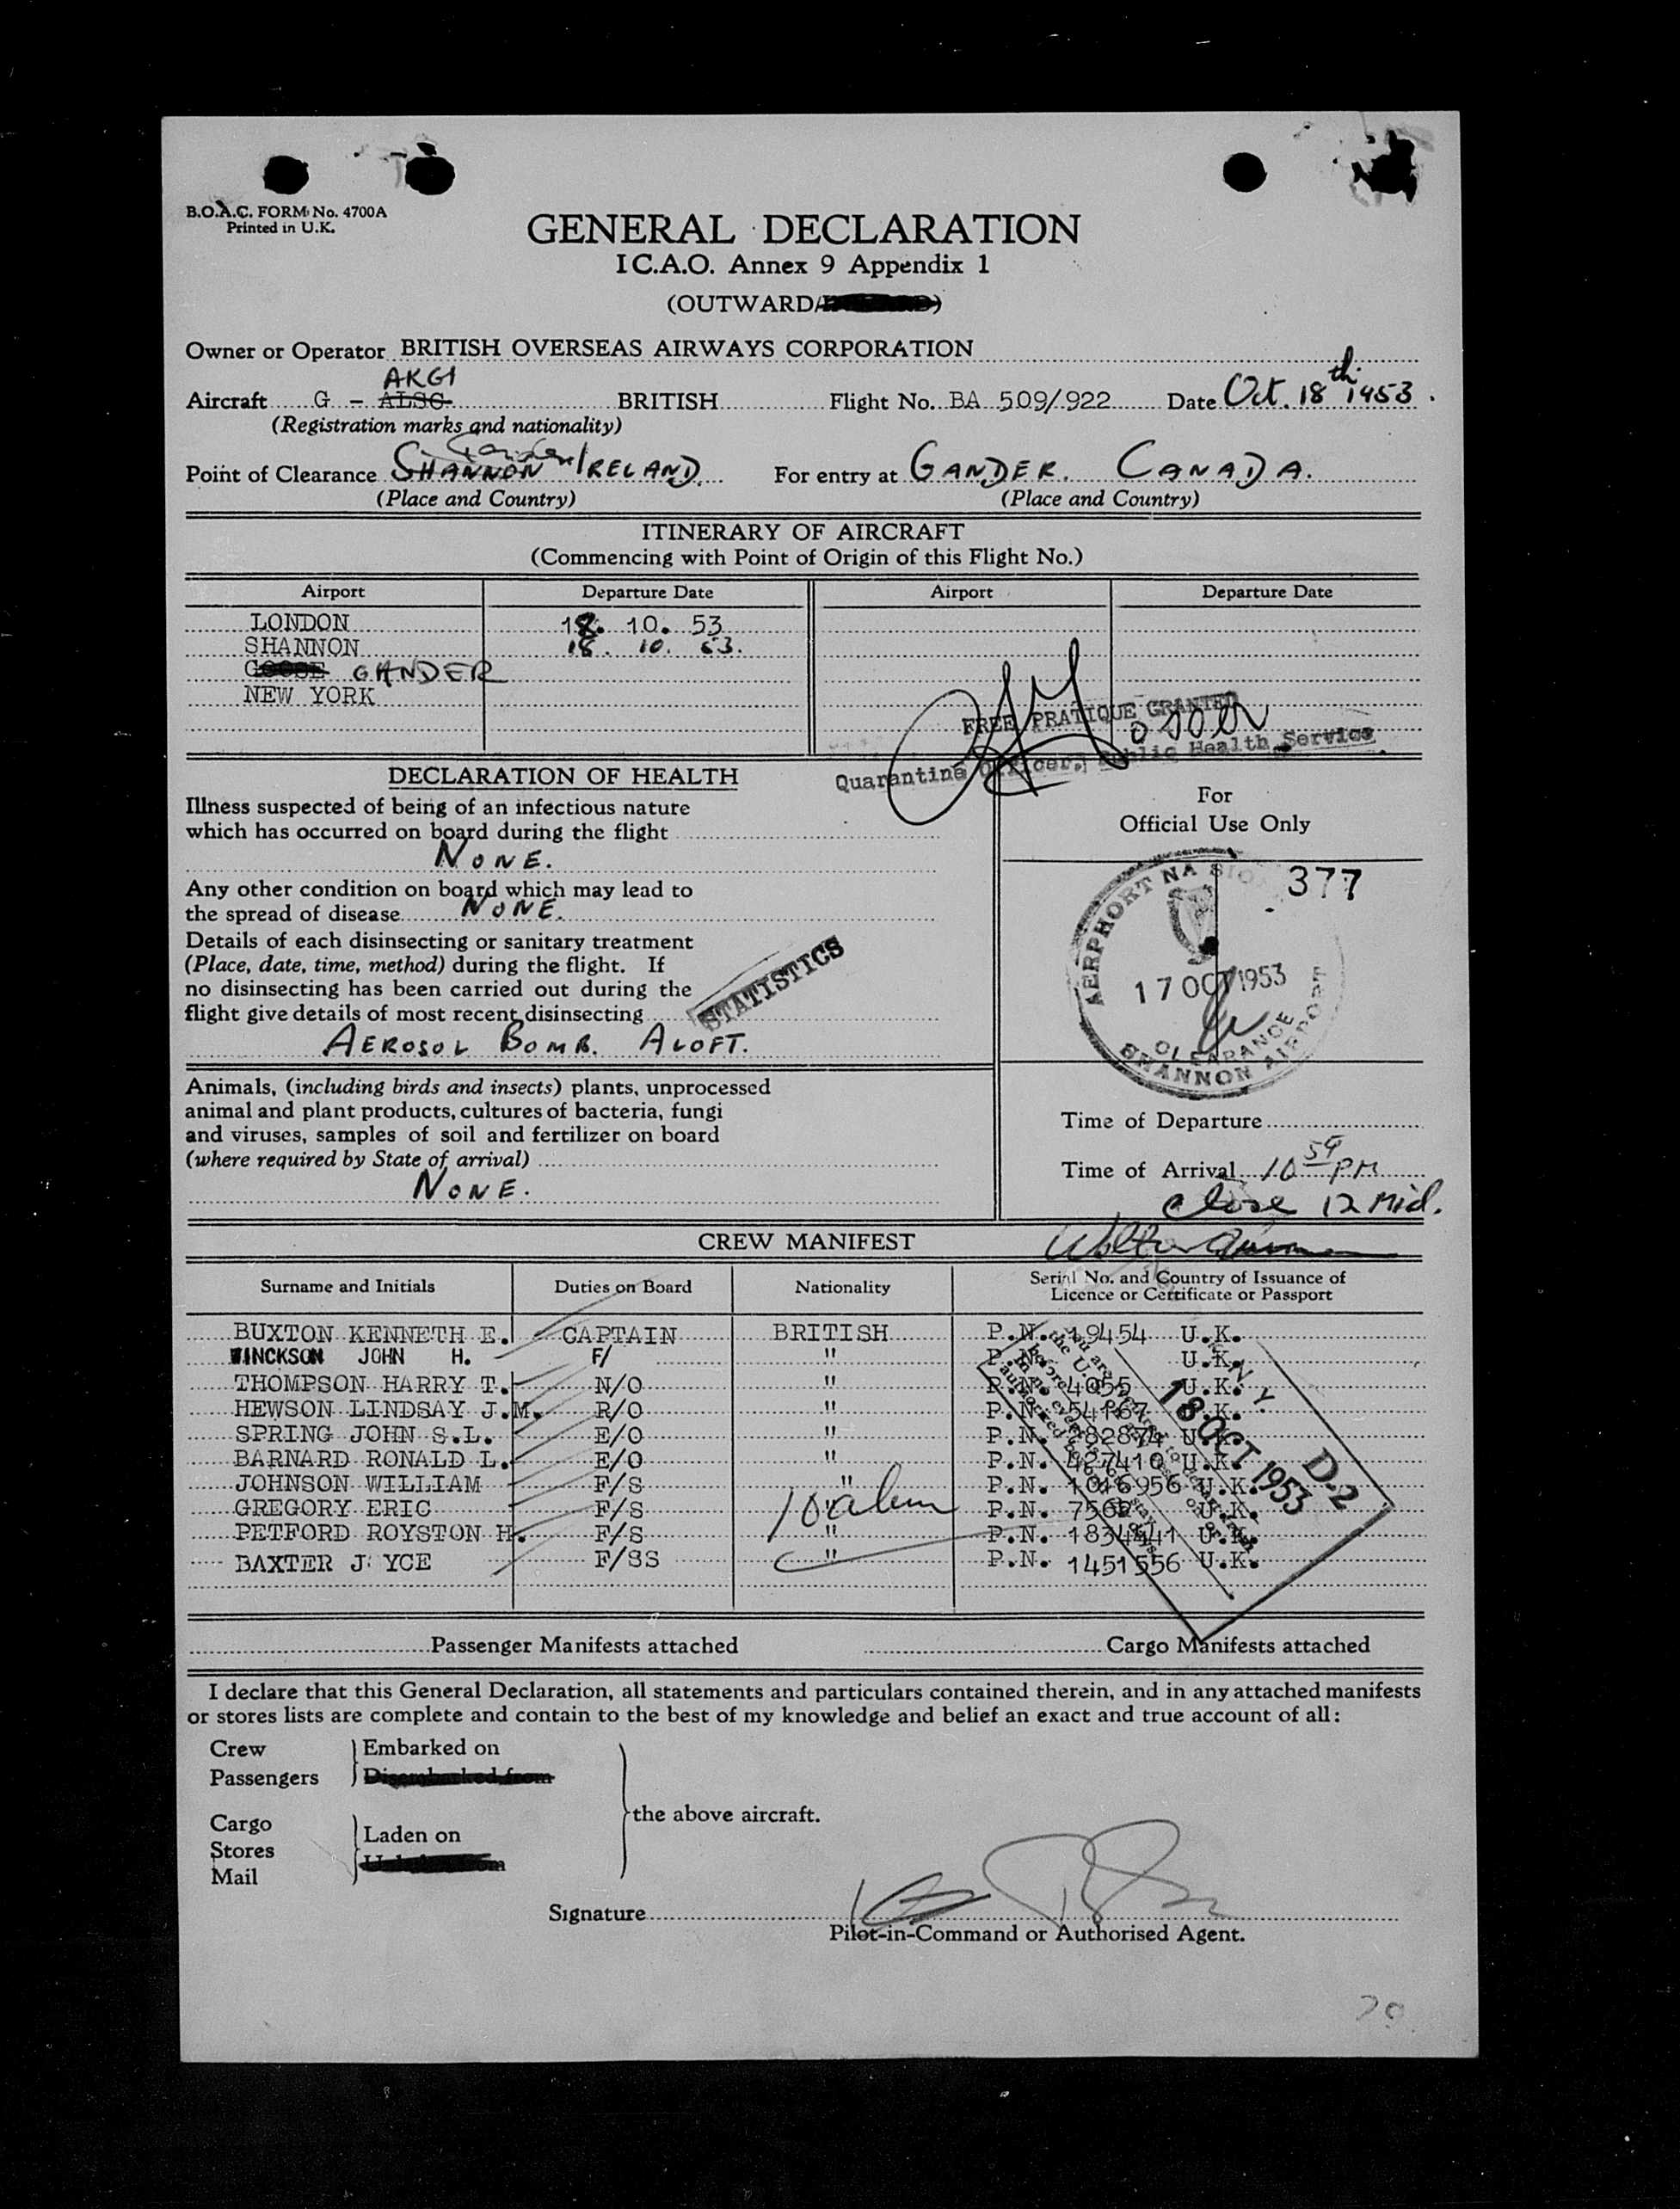 B.O.A.C. FORM No. 4700A
Printed in U.K.
GENERAL DECLARATION
I C.A.O. Annex 9 Appendix 1
(OUTWARD/
Owner or Operator BRITISH OVERSEAS AIRWAYS CORPORATION
AKGI
Aircraft G - ALSC BRITISH Flight No. BA 509/922 Date Oct. 18th 1953.
(Registration marks and nationality)
Point of Clearance SHANNON IRELAND. For entry at GANDER. CANADA.
(Place and Country) (Place and Country)
ITINERARY OF AIRCRAFT
(Commencing with Point of Origin of this Flight No.)
Airport Departure Date Airport Departure Date
LONDON 18. 10. 53
SHANNON 18. 10. 53.
GOOSE GANDER
NEW YORK
FREE PRATIQUE GRANTED
Quarantine Officer, Public Health Service
DECLARATION OF HEALTH
Illness suspected of being of an infectious nature
which has occurred on board during the flight
NONE.
Any other condition on board which may lead to
the spread of disease NONE.
Details of each disinsecting or sanitary treatment
(Place, date, time, method) during the flight. If
no disinsecting has been carried out during the
flight give details of most recent disinsecting
STATISTICS
AEROSOL BOMB. ALOFT.
Animals, (including birds and insects) plants, unprocessed
animal and plant products, cultures of bacteria, fungi
and viruses, samples of soil and fertilizer on board
(where required by State of arrival)
NONE.
For
Official Use Only
377
AERPHORT NA
17 OCT 1953
CLEARANCE
SHANNON AIRPORT
Time of Departure
Time of Arrival 10 59 PM
Close 12 Mid.
CREW MANIFEST
Surname and Initials Duties on Board Nationality Serial No. and Country of Issuance of
Licence or Certificate or Passport
BUXTON KENNETH E. CAPTAIN BRITISH P.N. 19454 U.K.
WINCKSON JOHN H. F/ " P.N. U.K.
THOMPSON HARRY T. N/O " P.N. 4055 U.K.
HEWSON LINDSAY J.M. R/O " P.N. 54167 U.K.
SPRING JOHN S.L. E/O " P.N. 82874 U.K.
BARNARD RONALD L. E/O " P.N. 427410 U.K.
JOHNSON WILLIAM F/S " P.N. 1016956 U.K.
GREGORY ERIC F/S " P.N. 7562 U.K.
PETFORD ROYSTON H. F/S " P.N. 1834441 U.K.
BAXTER J YCE F/SS " P.N. 1451556 U.K.
10 alien
N.Y.
18 OCT 1953
D.2
Passenger Manifests attached Cargo Manifests attached
I declare that this General Declaration, all statements and particulars contained therein, and in any attached manifests
or stores lists are complete and contain to the best of my knowledge and belief an exact and true account of all:
Crew Embarked on
Passengers Disembarked from
the above aircraft.
Cargo
Stores Laden on
Mail
Signature
Pilot-in-Command or Authorised Agent.